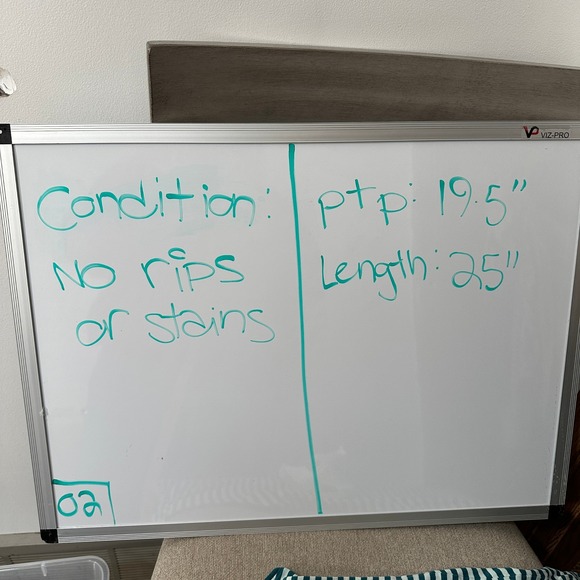 VP VIZ-PRO
Condition:
No rips
or stains
02
ptp: 19.5"
Length: 25"